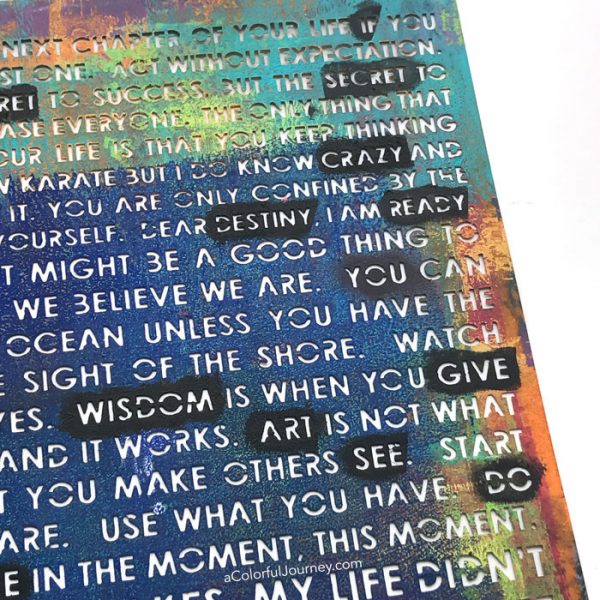 NEXT CHAPTER OF YOUR LIFE IF YOU
ST ONE. ACT WITHOUT EXPECTATION.
RET TO SUCCESS, BUT THE SECRET TO
ASE EVERYONE. THE ONLY THING THAT
OUR LIFE IS THAT YOU KEEP THINKING
W KARATE BUT I DO KNOW CRAZY AND
IT. YOU ARE ONLY CONFINED BY THE
YOURSELF. DEAR DESTINY, I AM READY
T MIGHT BE A GOOD THING TO
WE BELIEVE WE ARE. YOU CAN
OCEAN UNLESS YOU HAVE THE
E SIGHT OF THE SHORE. WATCH
YES. WISDOM IS WHEN YOU GIVE
AND IT WORKS. ART IS NOT WHAT
T YOU MAKE OTHERS SEE. START
ARE. USE WHAT YOU HAVE. DO
E IN THE MOMENT, THIS MOMENT.
KES. MY LIFE DIDN'T
aColorfulJourney.com